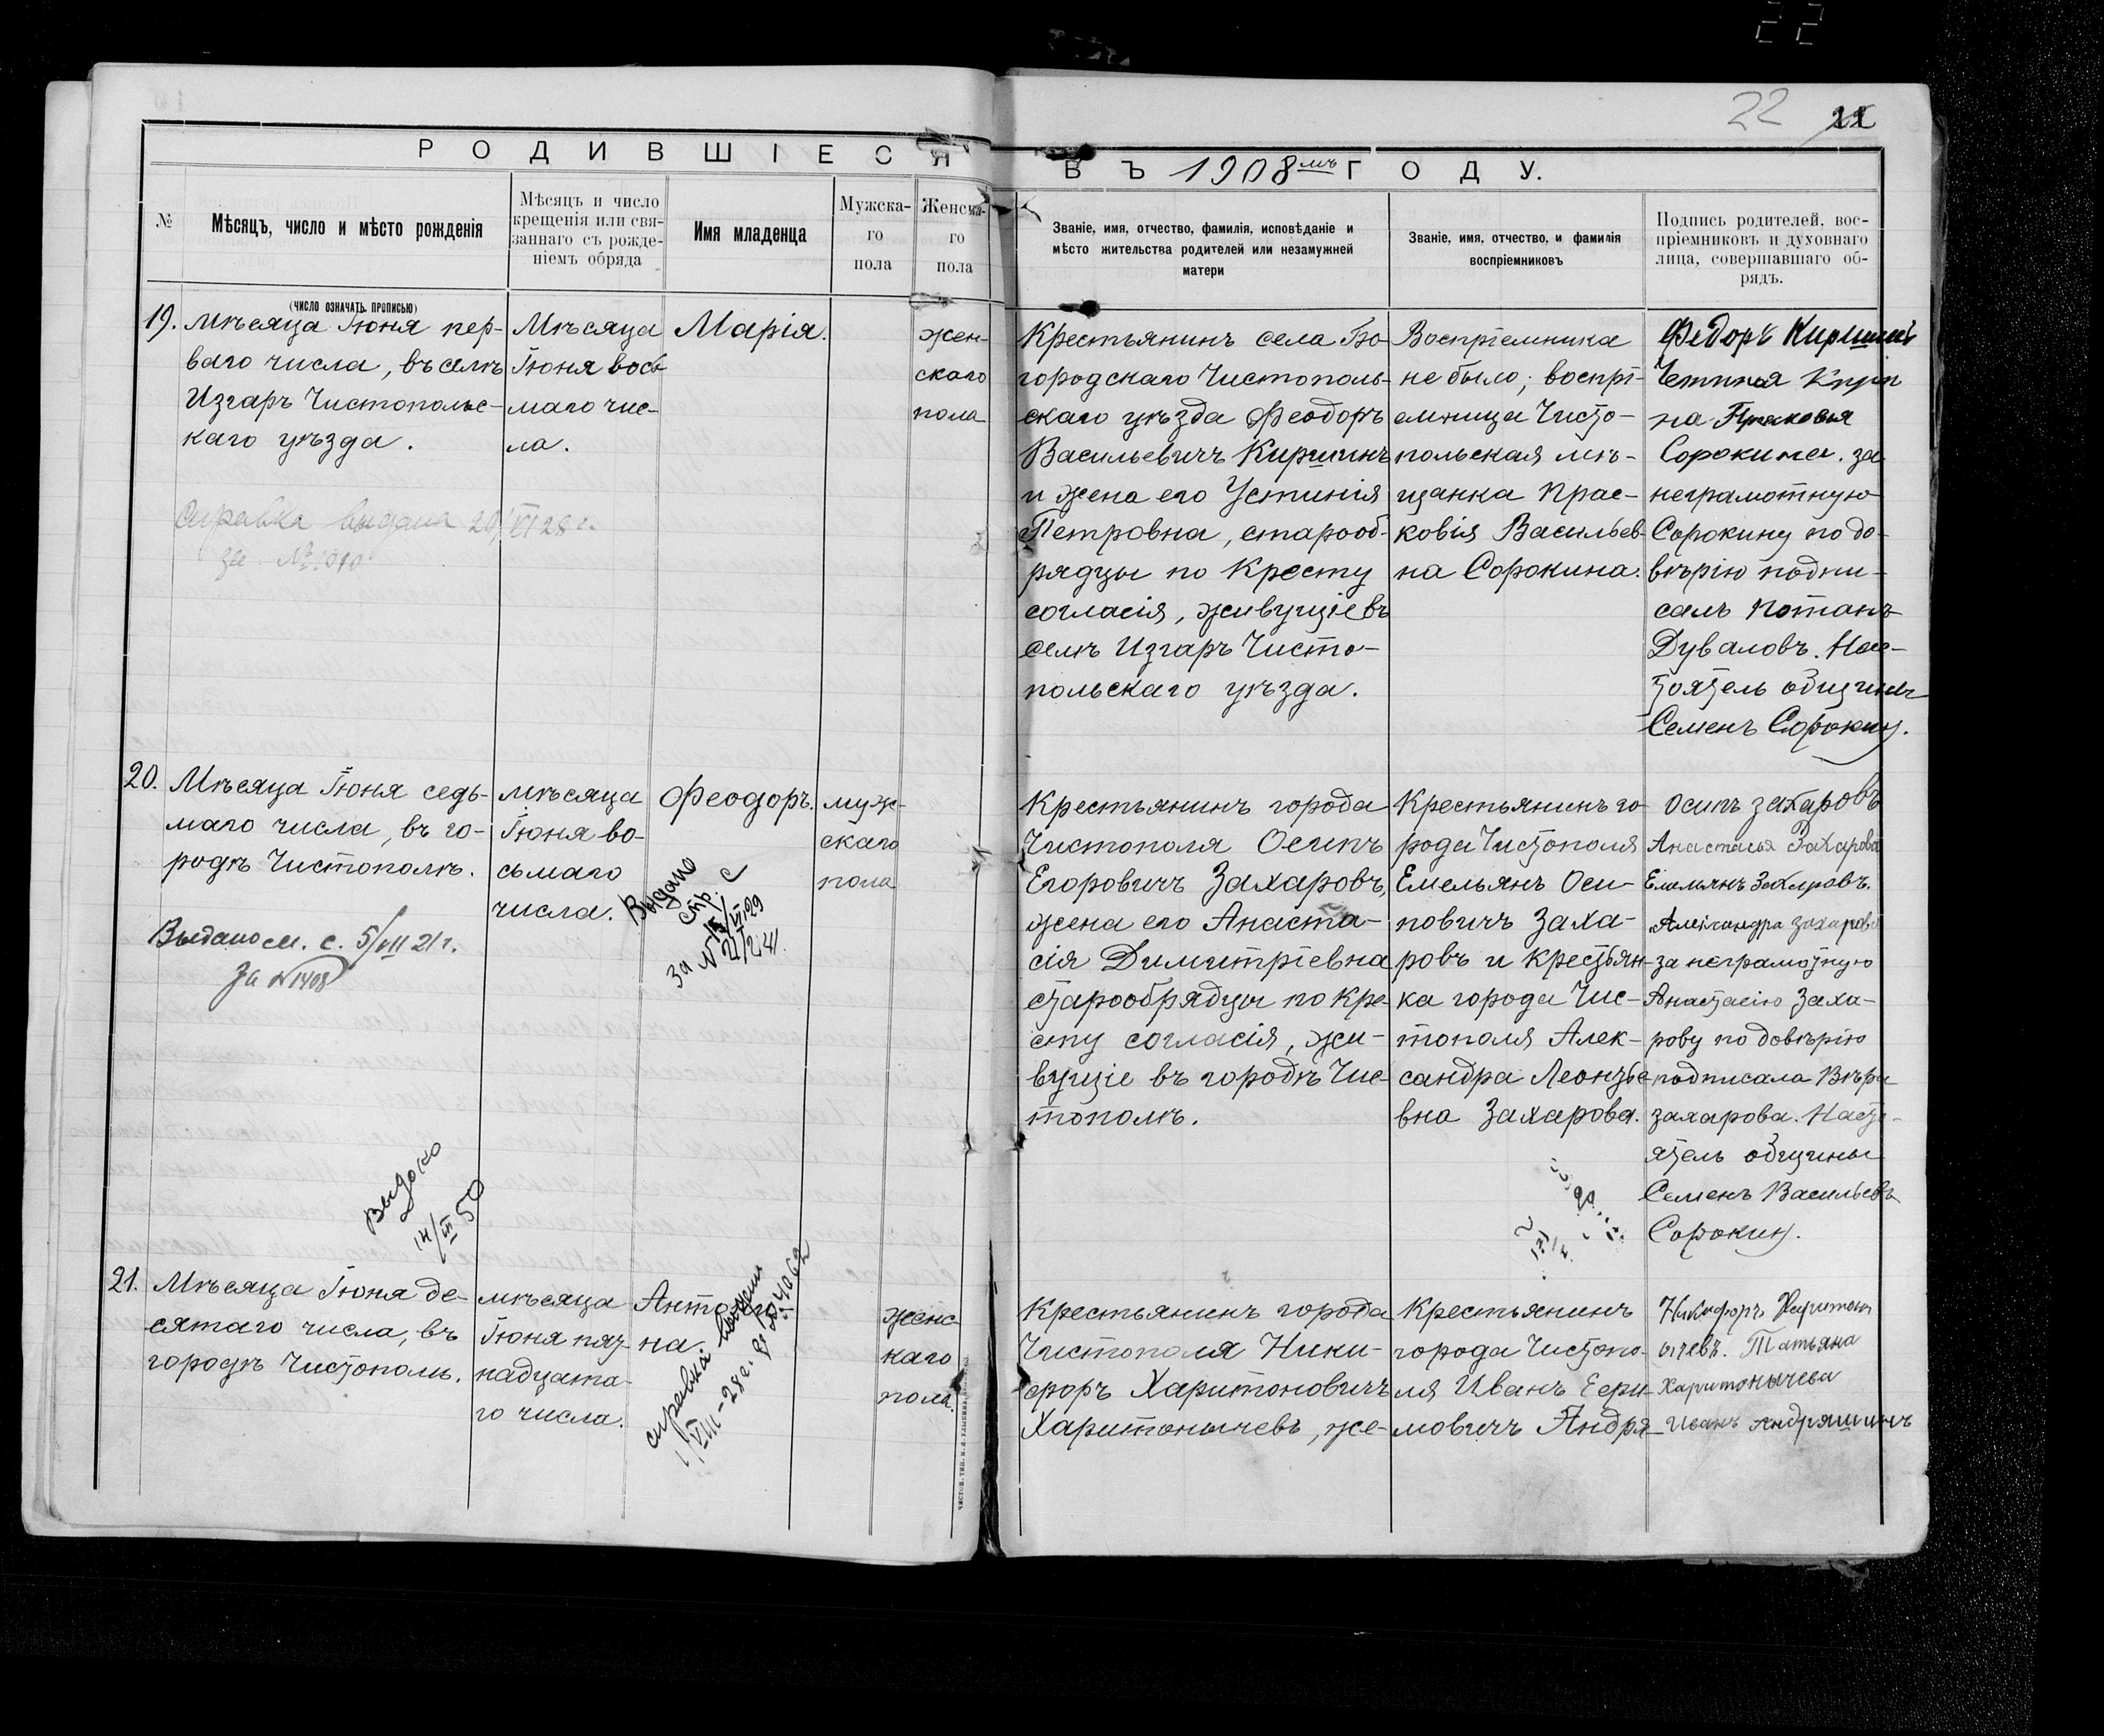 22
22
22
РОДИВШІЕСЯ
ВЪ 1908мъ ГОДУ.
№
Мѣсяцъ, число и мѣсто рожденія
(число означать прописью)
Мѣсяцъ и число
крещенія или свя-
заннаго съ рожде-
ніемъ обряда
Имя младенца
Мужска-
го
пола
Женска-
го
пола
Званіе, имя, отчество, фамилія, исповѣданіе и
мѣсто жительства родителей или незамужней
матери
Званіе, имя, отчество, и фамилія
воспріемниковъ
Подпись родителей, вос-
пріемниковъ и духовнаго
лица, совершавшаго об-
рядъ.
19.
Мѣсяца Іюня пер-
ваго числа, въ селѣ
Изгаръ Чистопольс-
каго уѣзда.
Справка выдана 20/VI 28 г.
за №1010
Мѣсяца
Іюня вось
маго чис-
ла.
Марія.
жен-
скаго
пола
Крестьянинъ села Бо-
городскаго Чистополь-
скаго уѣзда Феодоръ
Васильевичъ Киршинъ
и жена его Устинія
Петровна, старооб-
рядцы по Кресту
согласія, живущіе въ
селѣ Изгаръ Чисто-
польскаго уѣзда.
Воспріемника
не было; воспрі-
емница Чисто-
польская мѣ-
щанка Прас-
ковія Васильев-
на Сорокина.
Федоръ Киршинъ
на Прасковья
Сорокина. за
неграмотную
Сорокину по до-
вѣрію подпи-
салъ Потапъ
Дуваловъ. Нас-
тоятель общины
Семенъ Сорокинъ.
20.
Мѣсяца Іюня седь-
маго числа, въ го-
родѣ Чистополѣ.
Выдано см. с. 5/VII 21 г.
за №1408
мѣсяца
Іюня во-
сьмаго
числа.
Феодоръ.
Выдано
стр. с
за №
муж-
скаго
пола
Крестьянинъ города
Чистополя Осипъ
Егоровичъ Захаровъ,
жена его Анаста-
сія Димитріевна
старообрядцы по Кре-
сту согласія, жи-
вущіе въ городѣ Чис-
тополѣ.
Крестьянинъ го-
рода Чистополя
Емельянъ Оси-
повичъ Заха-
ровъ и крестьян-
ка города Чис-
тополя Алек-
сандра Леонтье-
вна Захарова.
Осипъ захаровъ
Анастасья Захарова
Емельянъ Захаровъ.
Александра Захарова
за неграмотную
Анастасію Заха-
рову по довѣрію
подписала Вѣра
захарова. Насто-
ятель общины
Семенъ Васильевъ
Сорокинъ.
Выдано
14/III 50
21.
Мѣсяца Іюня де-
сятаго числа, въ
городѣ Чистополь.
мѣсяца
Іюня пят-
надцата-
го числа.
Анто
на.
справка выдана
1/VIII-28 г. за № 4062
женс-
каго
пола.
Крестьянинъ города
Чистополя Ники-
форъ Харитоновичъ
Харитонычевъ, же-
Крестьянинъ
города Чистопо-
ля Иванъ Ефи-
мовичъ Андря-
Никифоръ Харитон
ычевъ. Татьяна
Харитонычева
Иванъ Андряшинъ